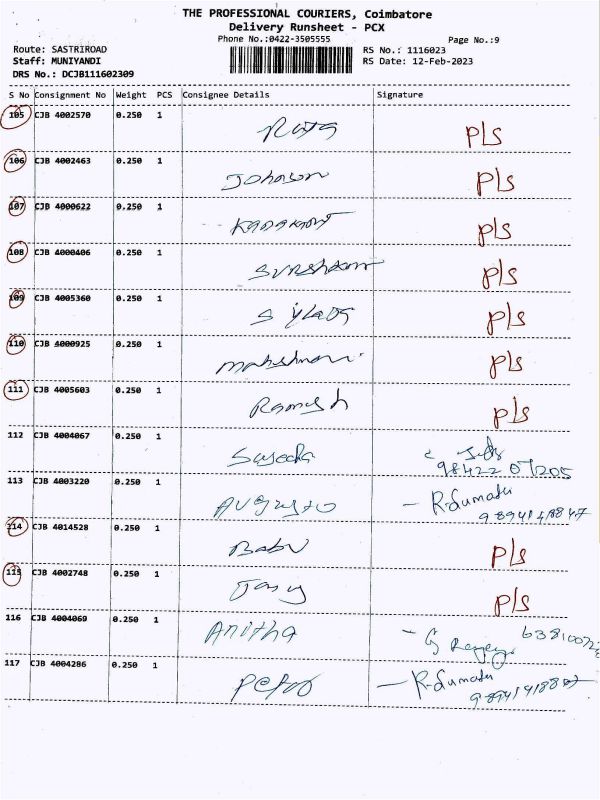 THE PROFESSIONAL COURIERS, Coimbatore
Delivery Runsheet - PCX
Phone No.:0422-3505555
Page No.:9
Route: SASTRIROAD
RS No.: 1116023
Staff: MUNIYANDI
RS Date: 12-Feb-2023
DRS No.: DCJB111602309
S No Consignment No Weight PCS Consignee Details Signature
105 CJB 4002570 0.250 1 P/s
106 CJB 4002463 0.250 1 Johnson P/s
107 CJB 4000622 0.250 1 P/s
108 CJB 4000406 0.250 1 P/s
109 CJB 4005360 0.250 1 P/s
110 CJB 4000925 0.250 1 P/s
111 CJB 4005603 0.250 1 Ramesh P/s
112 CJB 4004067 0.250 1 98422 07205
113 CJB 4003220 0.250 1 Augusto - R. Sumathi
114 CJB 4014528 0.250 1 Babu P/s
115 CJB 4002748 0.250 1 P/s
116 CJB 4004069 0.250 1 Anitha
117 CJB 4004286 0.250 1 - R. Sumathi